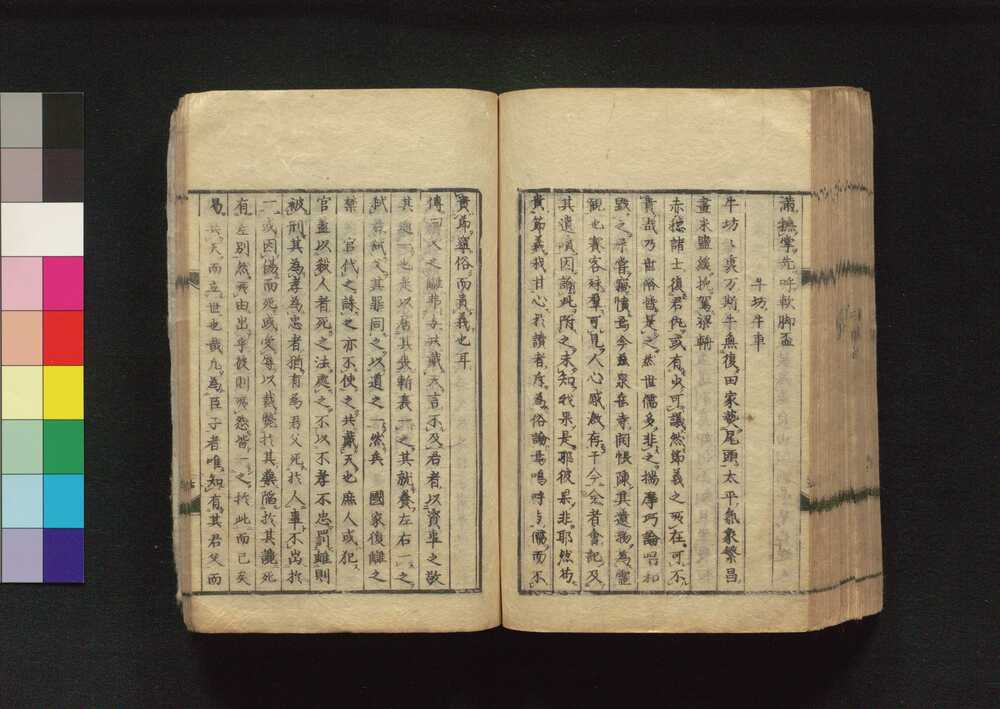 満撫掌先呼軟脚盃
牛坊牛車
牛坊裏万斯牛無復田家燕尾頭太平氣象繁昌
畫米鹽綫挽駕梁輈
赤穂諸士復君仇或有少可議然節義之所在可不
貴哉乃世俗皆是之然世儒多非之揣摩巧論唱和
毀之予嘗竊憤焉今茲泉岳寺開帳陳其遺物為靈
觀也賽客妹羣可見人心感激有千分余者會記及
其遺嘖因論此附之末知我果是耶彼果非耶然苟
貴節義我甘心於讀者斥為俗論焉嗚呼与儒而不
貴節寧俗而貴義也耳
傳曰父之讎弗與共戴天言不及君者以資事之敬
其一也是以居其喪斬衰一之其就養左右一之
弑君弑父其罪同之以道之一然矣國家復讎之
禁官代之誅之亦不使之共戴天也庶人或犯
官盡以殺人者死之法處之不以不孝不忠罰雖則
被刑其為孝為忠者猶有為君父死於人事不出於
一或因傷而死或受辱以裁斃於其藥陷於其讒死
有左別然所由出乎彼則吾怨皆一之於此而已矣
曷共天而立世也哉凡為臣子者唯知有其君父而